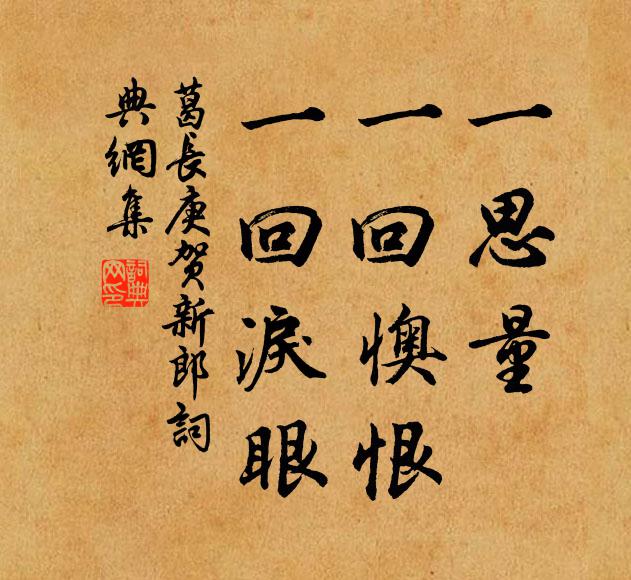 一思量
一回懊恨
一回淚眼
葛長庚賀新郎詞
典網集
詞典
网印